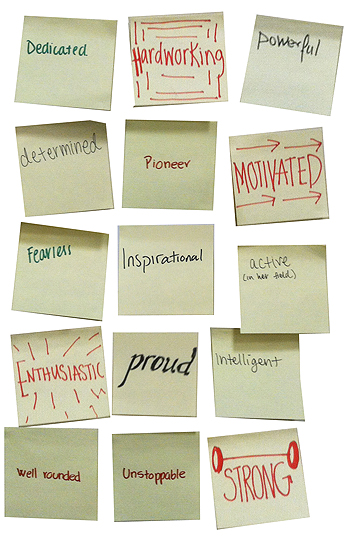 Dedicated
Hardworking
powerful
determined
Pioneer
MOTIVATED
Fearless
Inspirational
active
(in her field)
ENTHUSIASTIC
proud
Intelligent
Well rounded
Unstoppable
STRONG